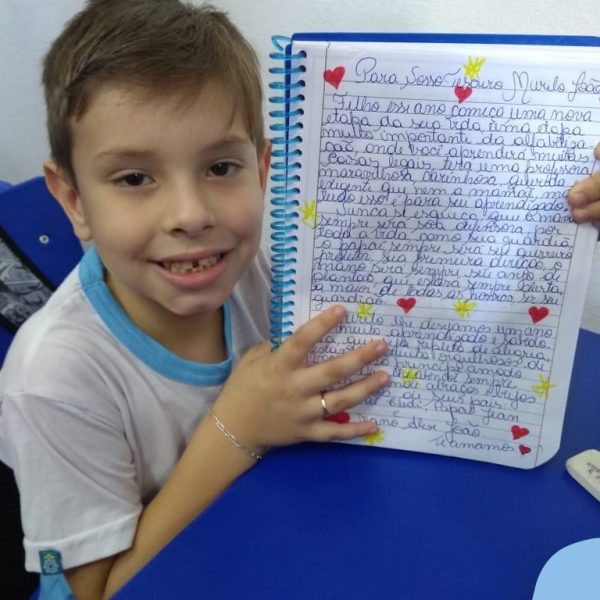 Para Nosso Tesouro Murilo João
Filho esse ano começa uma nova
etapa da sua vida, uma etapa
muito importante da alfabetiza
ção, onde você aprenderá muitas
coisas legais, terá uma professora
maravilhosa, carinhosa, querida
exigente que nem a mamãe, mas
tudo isso é para seu aprendizado.
Nunca se esqueça que a mamãe
sempre será sua defensora por
toda a vida, como sua guardiã,
o papai sempre será seu guerreiro
protetor, sua primeira direção, o
mano será sempre seu anjo de
plantão que estará sempre alerta,
a maior de todas as honras, ser seu
guardião.
Murilo lhe desejamos um ano
muito aprendizado, sabedo
ria, que seja repleto de alegria,
muito orgulhosos de
príncipe amado
sempre
abraços e beijos
de seus pais:
Papai Jean
e
mano Alex João
te amamos